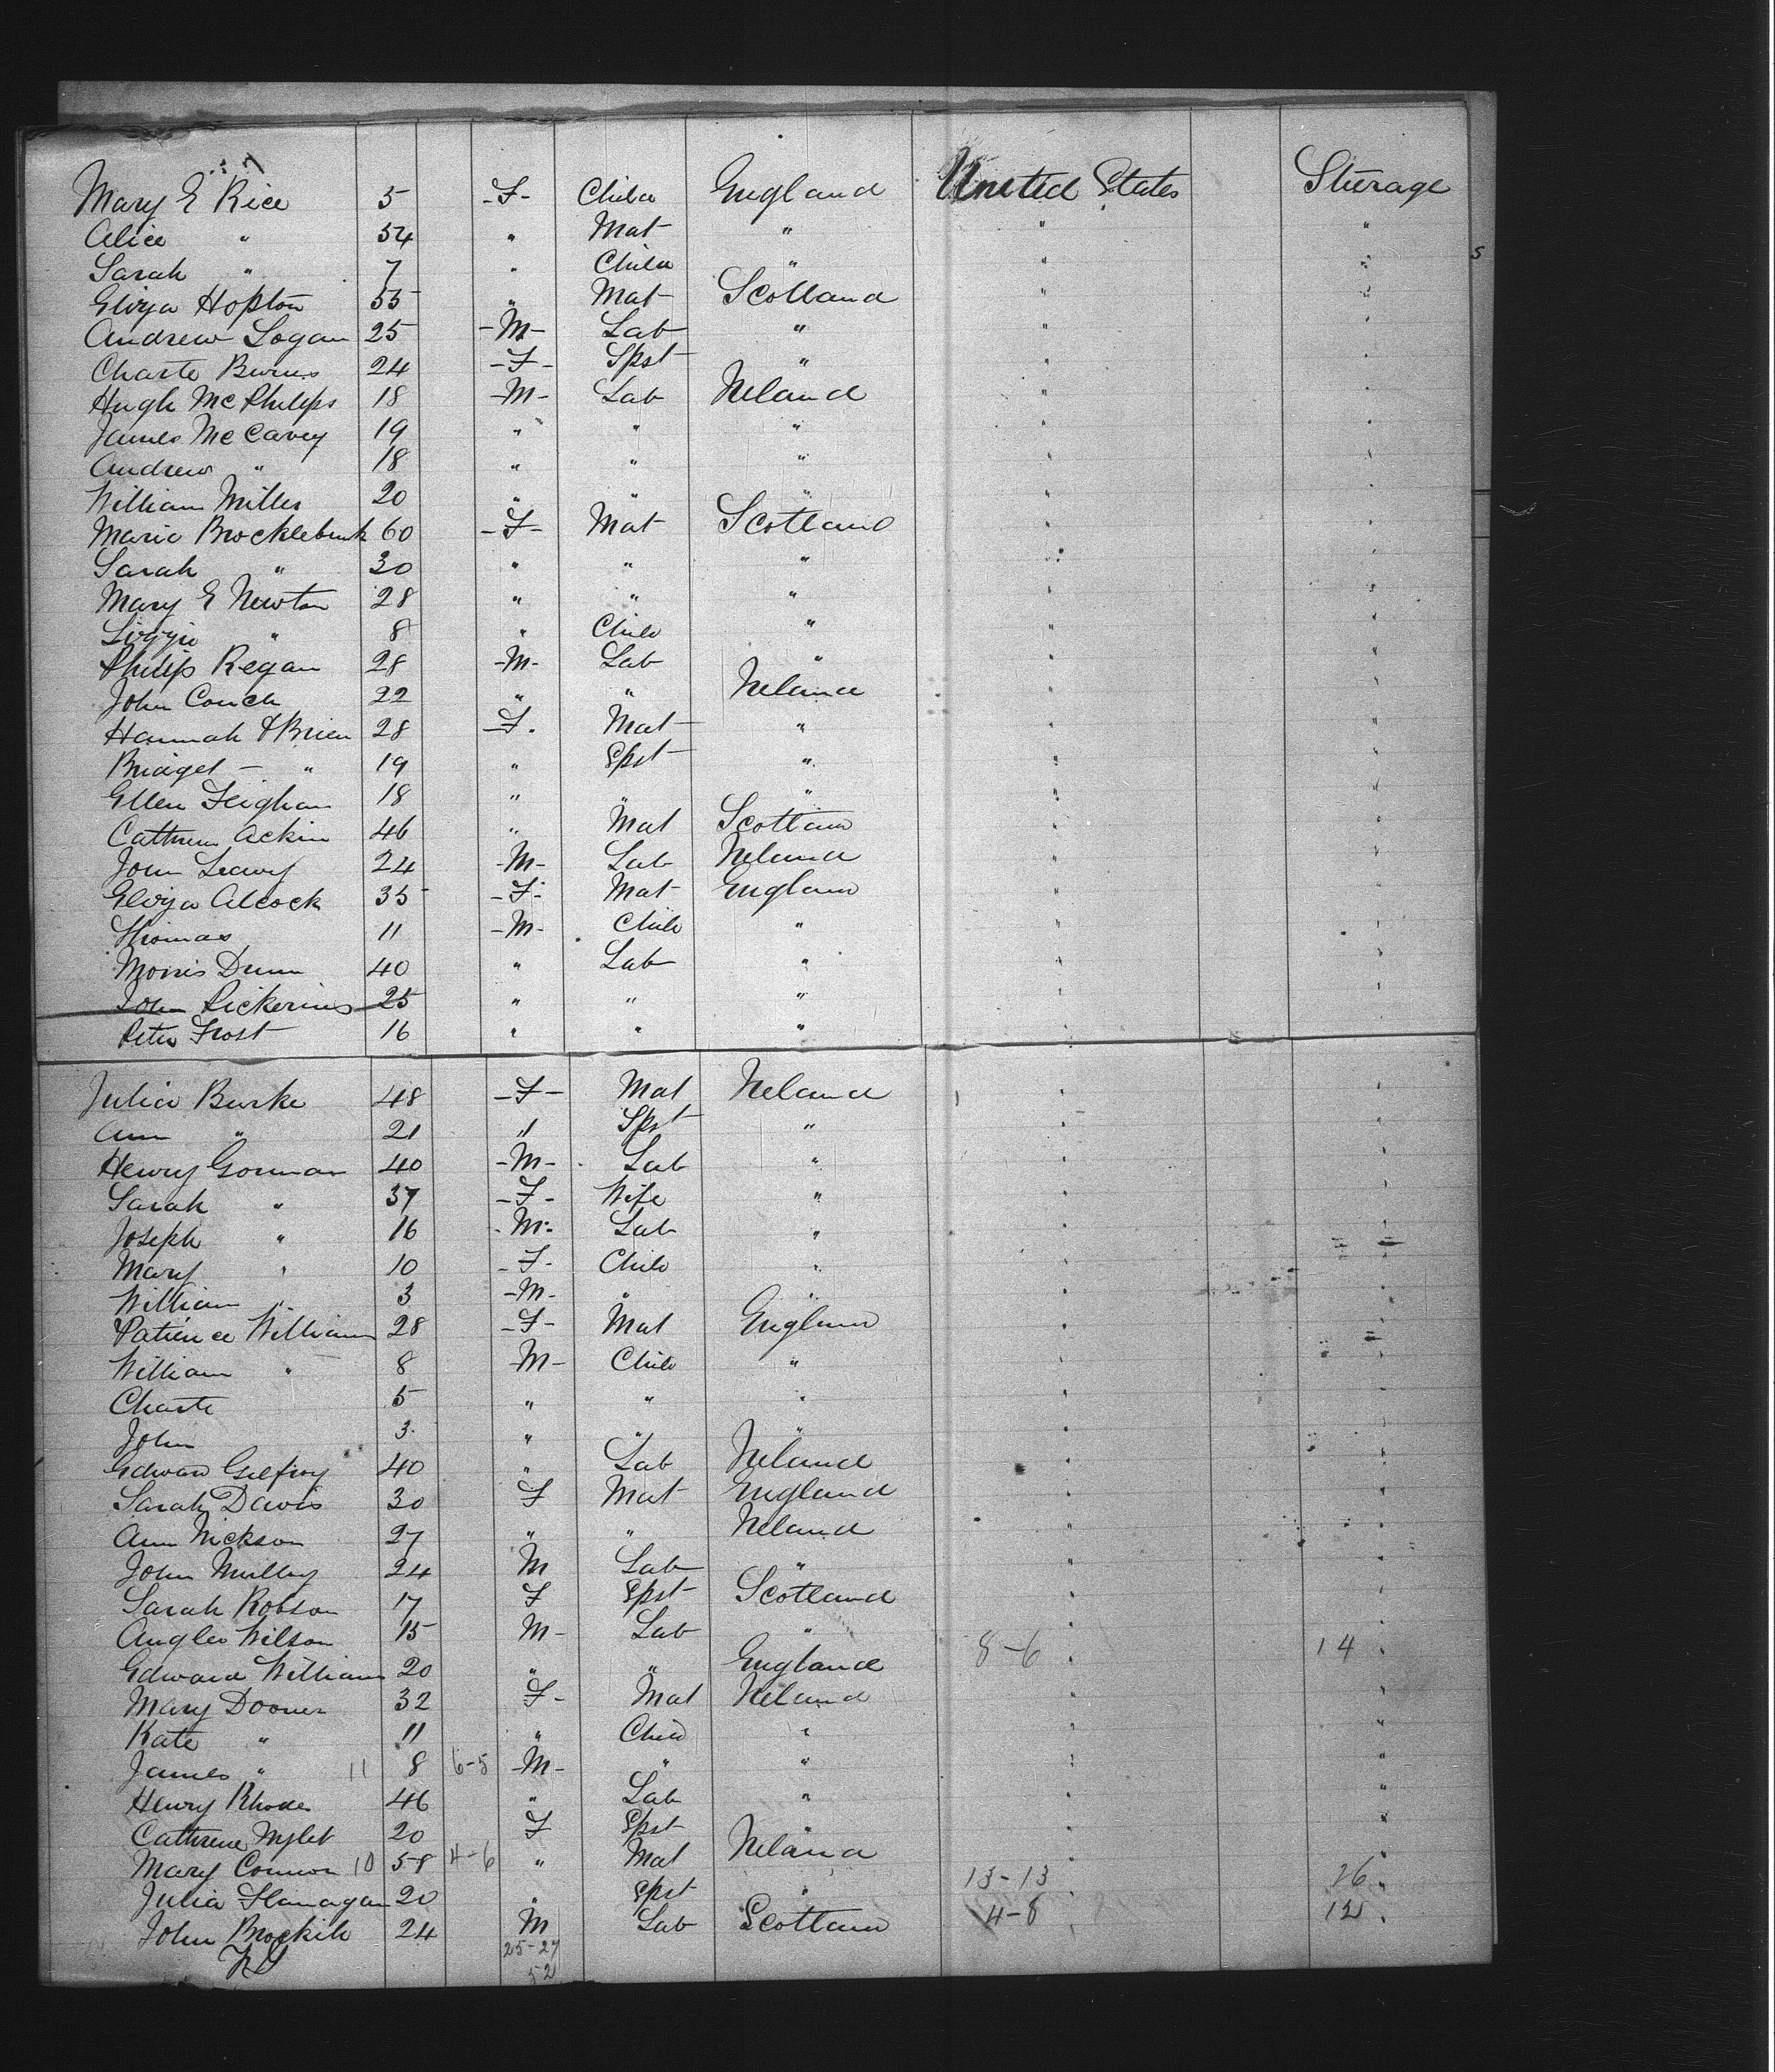 Mary E Rice 5 -F- Child England United States Sterage
Alice " 54 " Mat " " "
Sarah " 7 " Child " " "
Eliza Hopton 55 " Mat Scotland " "
Andrew Logan 25 -M- Lab " " "
Charte Burns 24 -F- Spst " " "
Hugh McPhilips 18 -M- Lab Ireland " "
James McCavey 19 " " " " "
Andrew " 18 " " " " "
William Miller 20 " " " " "
Maria Brocklebank 60 -F- Mat Scotland " "
Sarah " 30 " " " " "
Mary E Newton 28 " " " " "
Lizzie " 8 " Child " " "
Philip Regan 28 -M- Lab " " "
John Couch 22 " " Ireland " "
Hannah O'Brien 28 -F. Mat " " "
Bridget - " 19 " Spst " " "
Ellen Feighan 18 " " " " "
Cathren Ackin 46 " Mat Scotland " "
John Leavy 24 -M- Lab Ireland " "
Eliza Alcock 35 -F- Mat England " "
Thomas 11 -M- Child " " "
Morris Dunn 40 " Lab " " "
John Pickering 25 " " " " "
Peter Frost 16 " " " " "
Julia Burke 48 -F- Mat Ireland " "
Ann " 21 " Spst " " "
Henry Gorman 40 -M- Lab " " "
Sarah " 37 -F- Wife " " "
Joseph " 16 -M- Lab " " "
Mary " 10 -F- Child " " "
William " 3 -M- " " " "
Patience William 28 -F- Mat England " "
William " 8 M- Child " " "
Charte 5 " " " " "
John 3 " " " " "
Edward Gilfroy 40 " Lab Ireland " "
Sarah Davis 30 F Mat England " "
Ann Nickson 27 " " Ireland " "
John Mullay 24 M Lab " " "
Sarah Robson 17 F Spst Scotland " "
Angler Wilson 15 M- Lab " " "
Edward William 20 " " England 8-6 " 14 "
Mary Dooner 32 F- Mat Ireland " "
Kate " 11 " Child " " "
James " 11 8 6-5 -M- " " " "
Henry Rhodes 46 " Lab " " "
Cathrene Myler 20 F Spst " " "
Mary Connor 10 58 4-6 " Mat Ireland " "
Julia Flanagan 20 " Spst " 13-13 " 26 "
John Brockil 24 M Lab Scotland 4-8 " 12 "
25-27
52